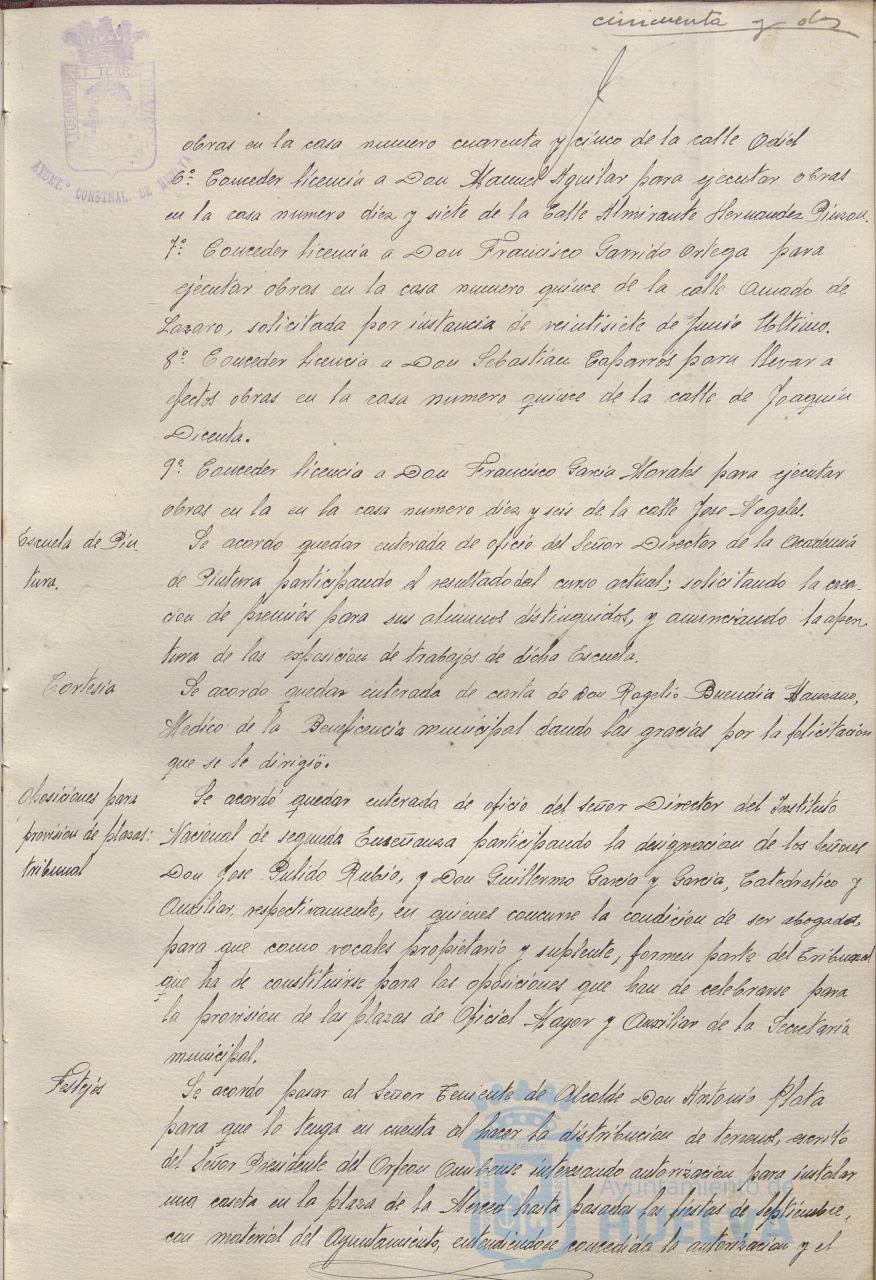 cincuenta y dos
PORTUS MARIS ET TERRAE CUSTODIA
AYUNT.º CONSTNAL. DE HUELVA
obras en la casa numero cuarenta y cinco de la calle Odiel
6º Conceder licencia a Don Manuel Aguilar para ejecutar obras
en la casa numero diez y siete de la Calle Almirante Hernandez Pinzon.
7º Conceder licencia a Don Francisco Garrido Ortega para
ejecutar obras en la casa numero quince de la calle Amado de
Lazaro, solicitada por instancia de veintisiete de Junio Ultimo.
8º Conceder licencia a Don Sebastián Caparrós para llevar a
efectos obras en la casa numero quince de la calle de Joaquin
Dicenta.
9º Conceder licencia a Don Francisco Garcia Morales para ejecutar
obras en la en la casa numero diez y seis de la calle Jose Nogales.
Escuela de Pin
tura.
Se acordo quedar enterada de oficio del Señor Director de la Academia
de Pinturra participando el resultado del curso actual; solicitando la crea-
cion de premios para sus alumnos distinguidos, y anunciando la aper-
tura de las exposicion de trabajos de dicha Escuela.
Cortesia
Se acordo quedar enterada de carta de Don Rogelio Buendia Manzano,
Medico de la Beneficencia municipal dando las gracias por la felicitación
que se le dirigió.
Oposiciones para
provision de plazas:
tribunal
Se acordó quedar enterada de oficio del Señor Director del Instituto
Nacional de segunda Enseñanza participando la designacion de los Señores
Don Jose Pulido Rubio, y Don Guillermo Garcia y Garcia, Catedratico y
Auxiliar respectivamente, en quienes concurre la condicion de ser abogados,
para que como vocales propietario y suplente, formen parte del Tribunal
que ha de constituirse para las oposiciones que han de celebrarse para
la provision de las plazas de Oficial Mayor y Auxiliar de la Secretaria
municipal.
Festejos
Se acordo pasar al Señor Teniente de Alcalde Don Antonio Plata
para que lo tenga en cuenta al hacer la distribucion de terrenos, escrito
del Señor Presidente del Orfeon Onubense interesando autorizacion para instalar
una caseta en la plaza de la Merced hasta pasadas las fiestas de septiembre,
con material del Ayuntamiento, entendiendose concedida la autorizacion y el
Ayuntamiento de
HUELVA